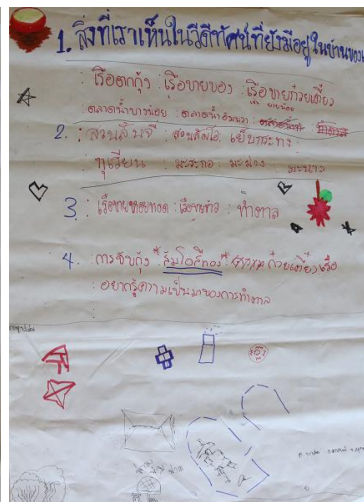 1. สิ่งที่เราเห็นในวีดีทัศน์ที่ยังมีอยู่ในบ้านของ
: เรือตกกุ้ง : เรือขายของ : เรือขายก๋วยเตี๋ยว
ตลาดน้ำบางน้อย : ตลาดน้ำอัมพวา :
2. : สวนลิ้นจี่ : สวนส้มโอ : เย็บกระทง :
ทุเรียน : มะละกอ : มะม่วง : มะนาว
3 : เรือขายหอยทอด : เรือขายข้าว : ทำตาล
4. การจับกุ้ง * ส้มโอสีทอง * ก๋วยเตี๋ยวเรือ
: อยากรู้ความเป็นมาของการทำตาล
A
R
A